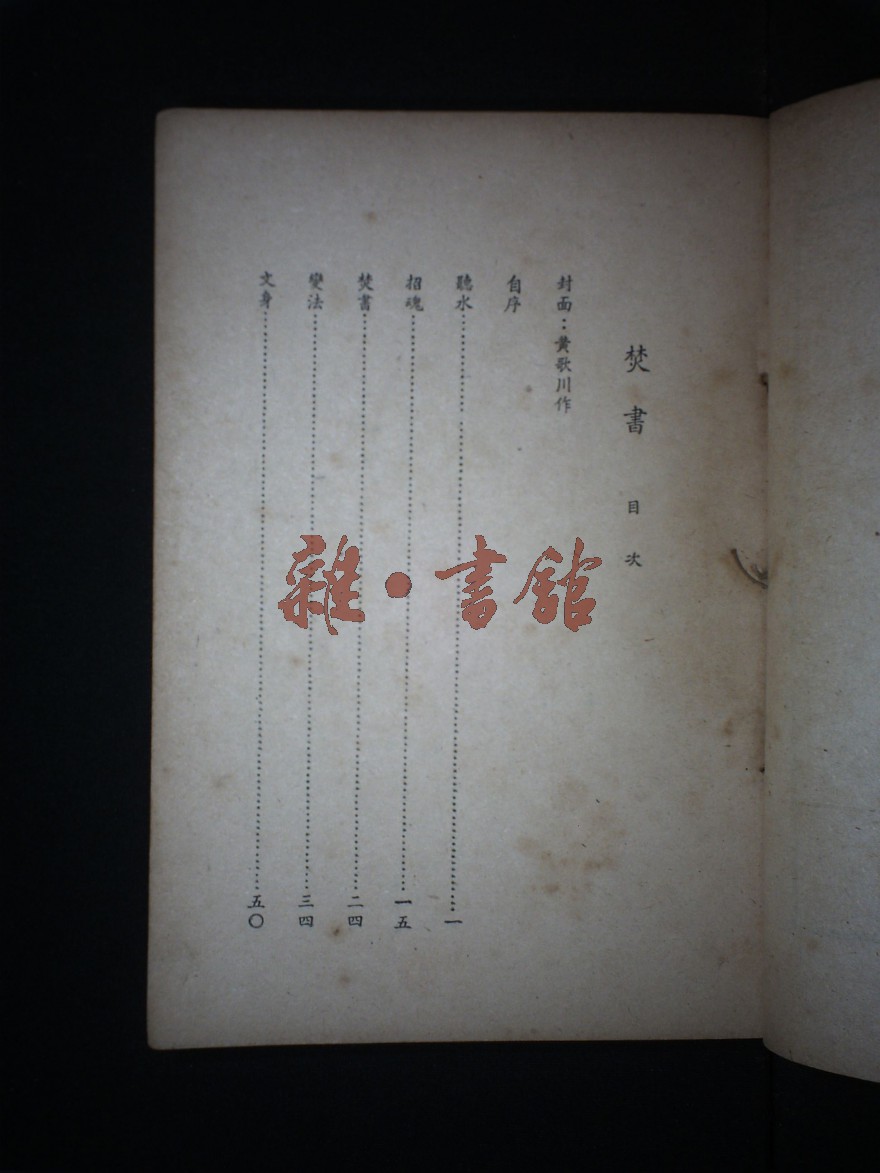 焚書 目次
封面：黃歌川作
自序
聽水……一
招魂……一五
焚書……二四
變法……三四
文身……五〇
雜·書舘